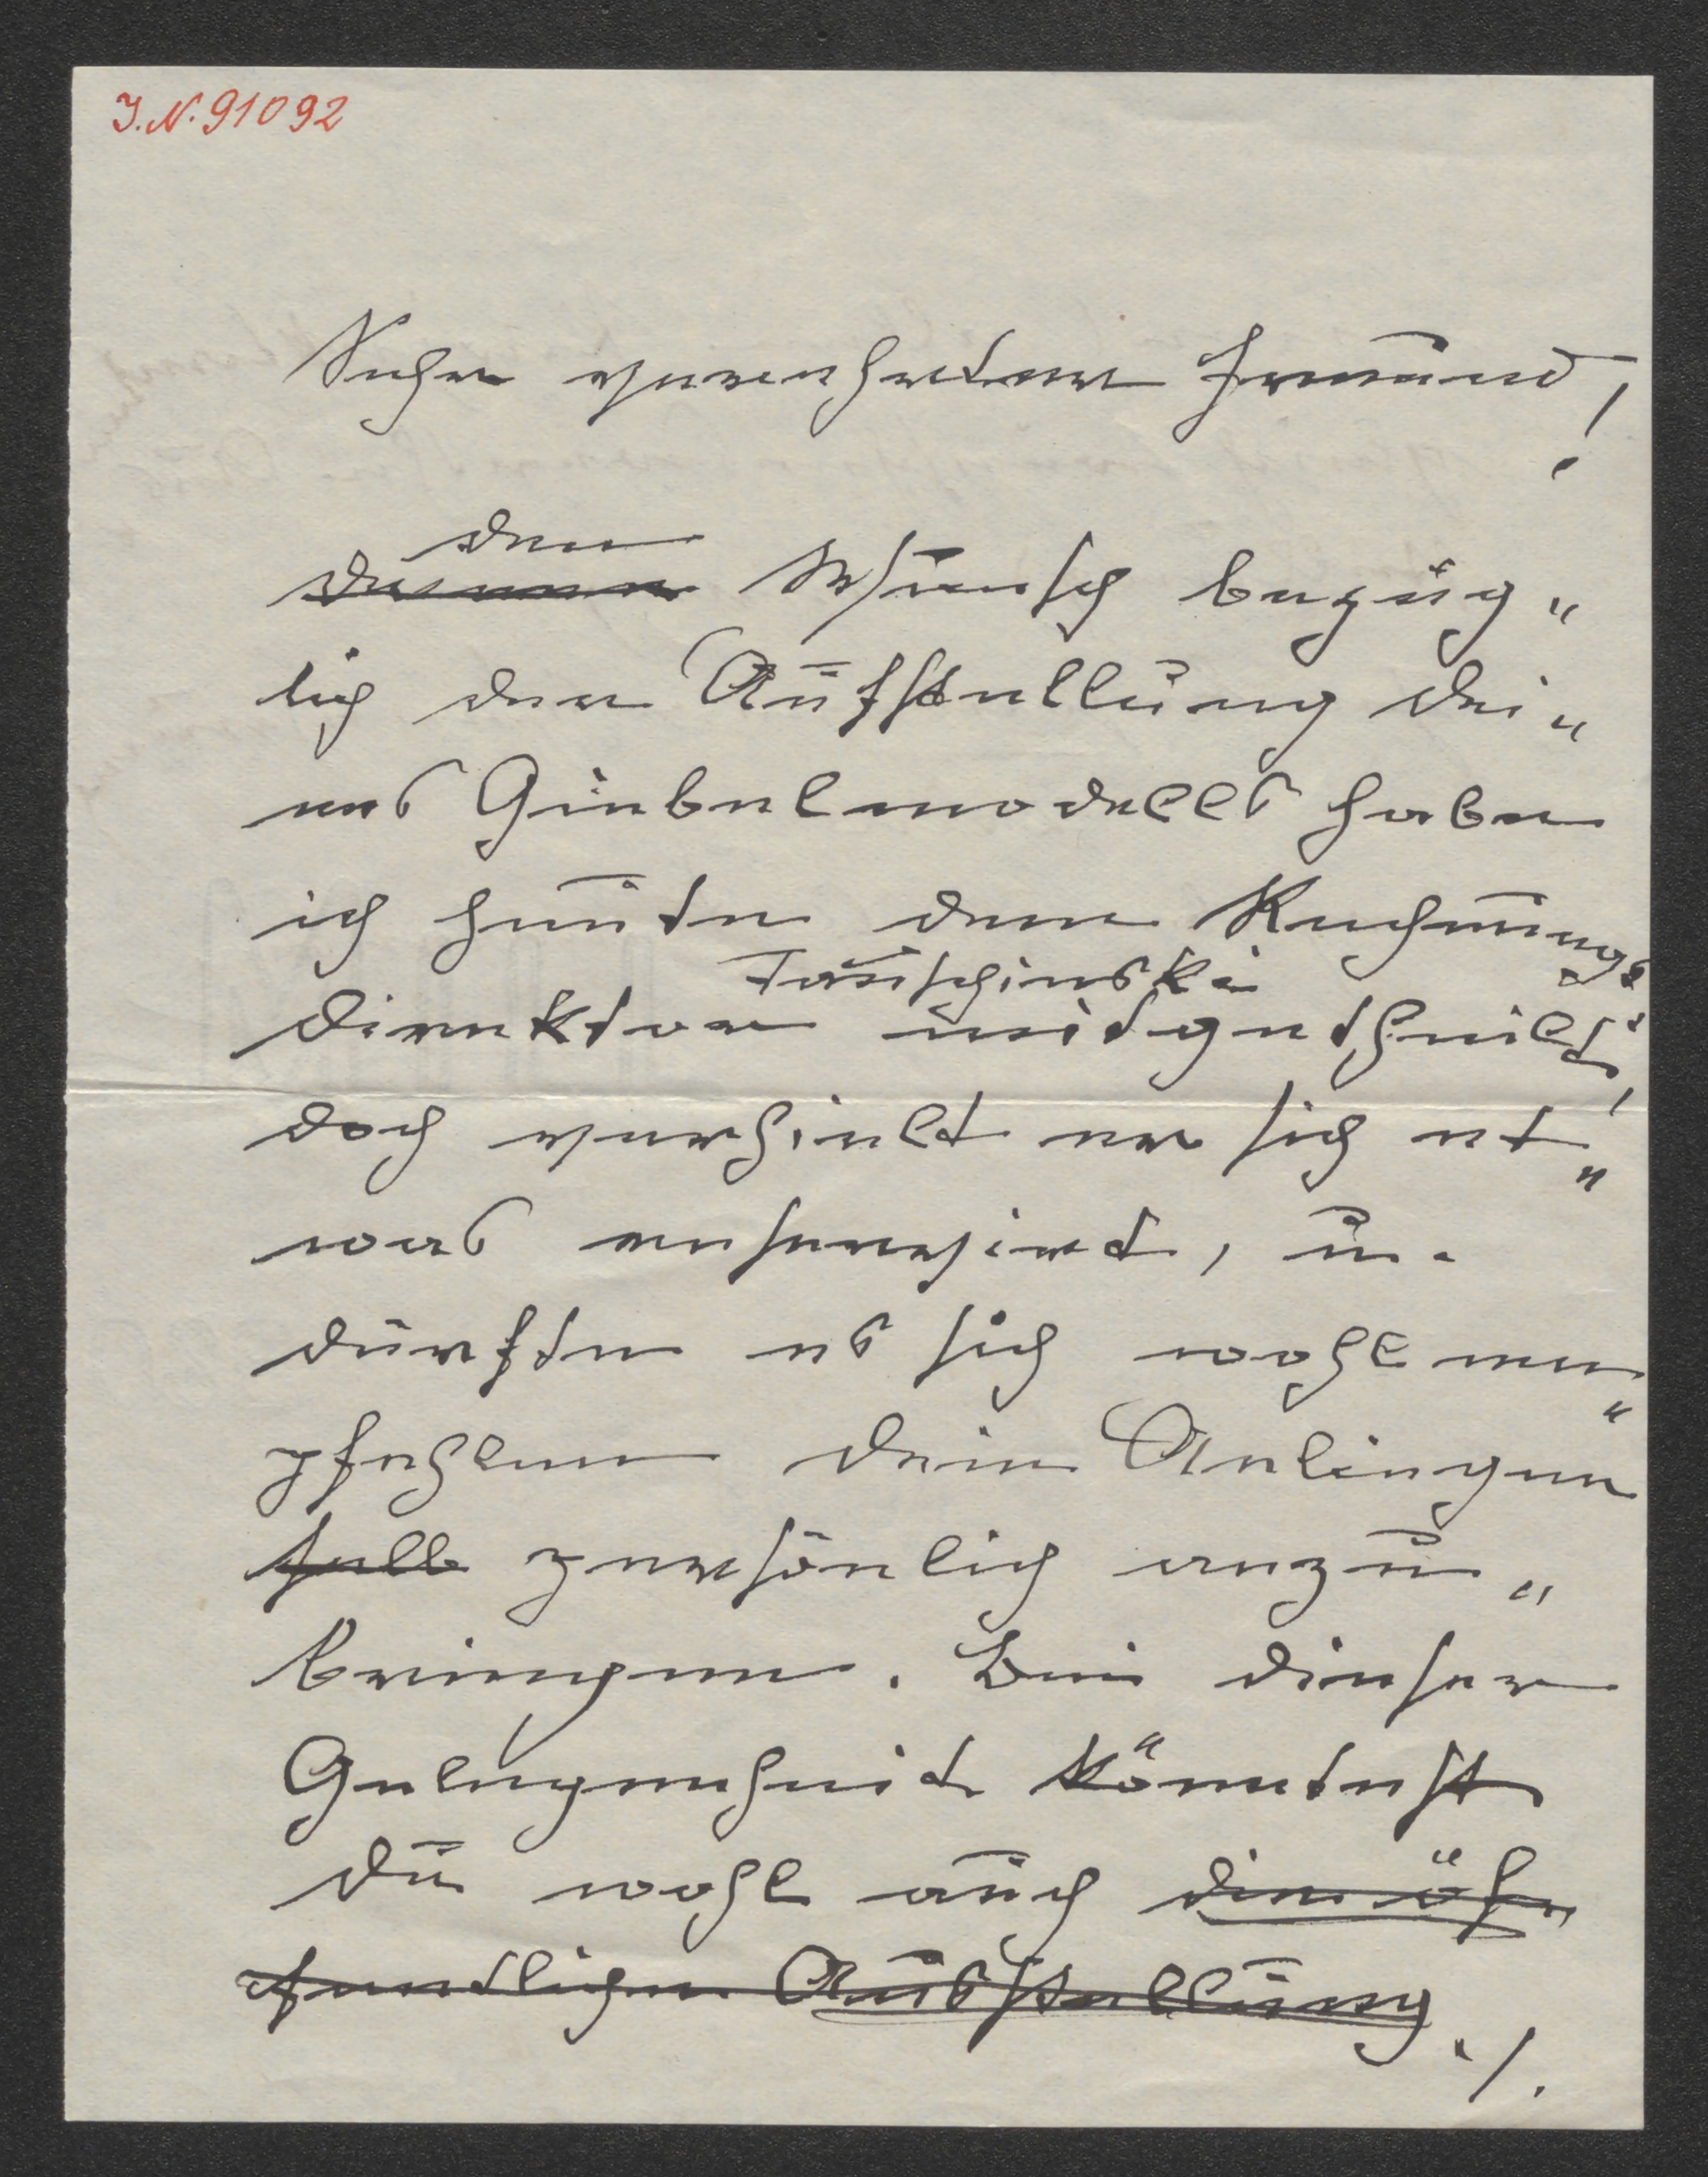 I.N. 91092
Sehr verehrter Freund!
den
Deinen Wunsch bezüg„
lich der Aufstellung dei„
nes Giebelmodells habe
ich heute dem Rechnungs
Tauschinski
direktor mitgetheilt,
doch verhielt er sich et„
was reservirt, u.
dürfte es sich wohl em„
pfehlen dein Anliegen
selb persönlich anzu„
bringen. Bei dieser
Gelegenheit könntest
du wohl auch die öf„
fentliche Ausstellung
./.